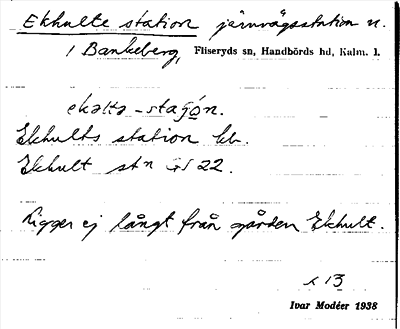 Ekhulte station järnvägsstation n.
i Bankeberg, Fliseryds sn, Handbörds hd, Kalm. l.
ekəltə-staʃón.
Ekhults station kb.
Ekhult stn GS 22.
Ligger ej långt från gården Ekhult.
x 13
Ivar Modéer 1938